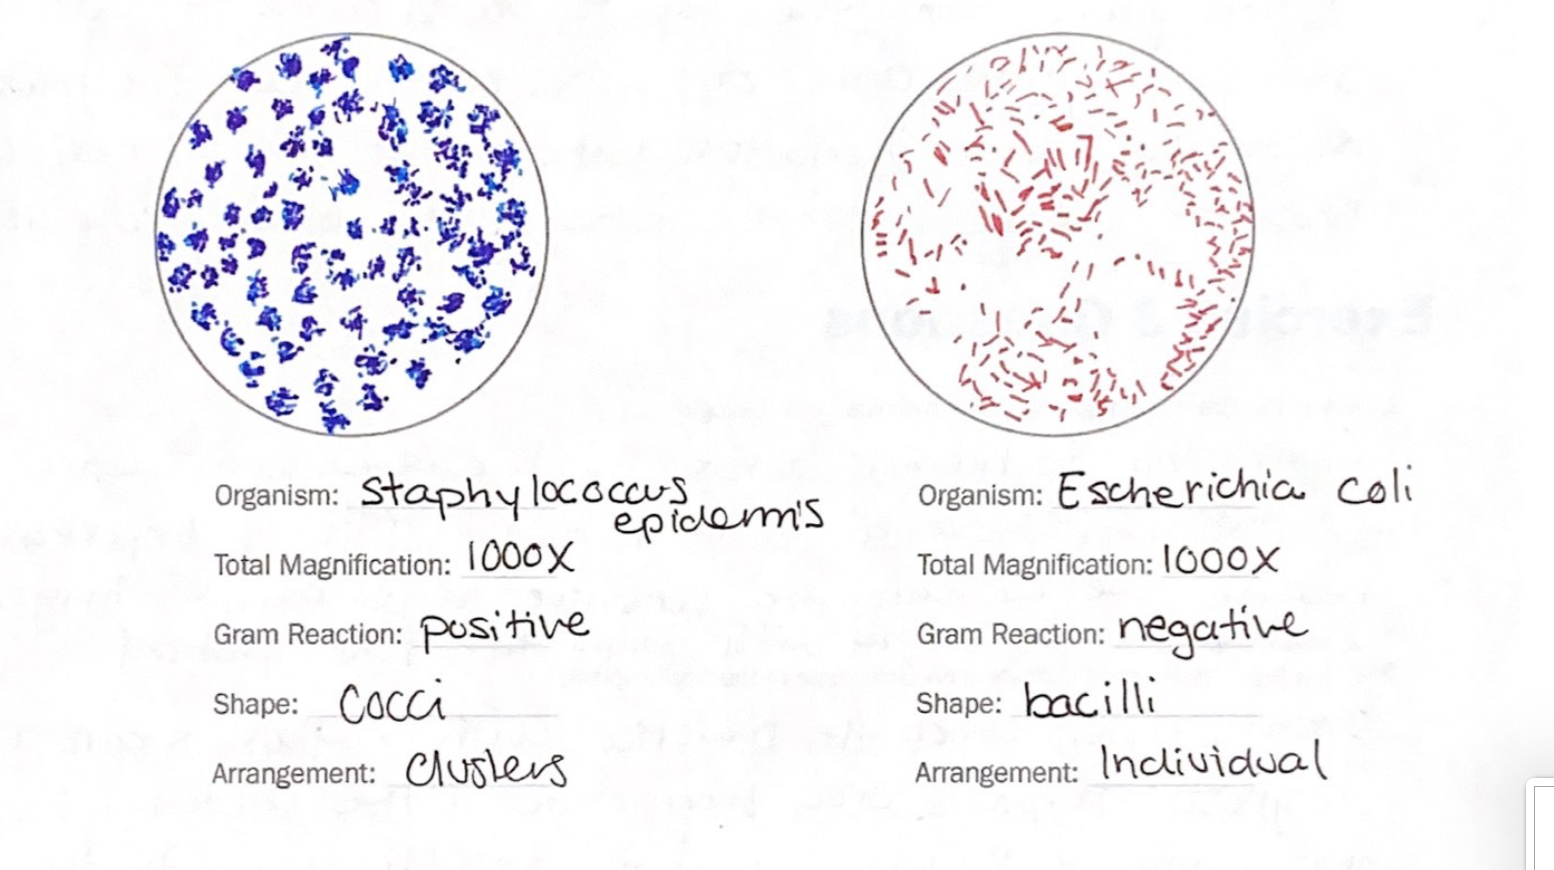 Organism: Staphylococcus
epidermis
Total Magnification: 1000X
Gram Reaction: positive
Shape: cocci
Arrangement: Clusters
Organism: Escherichia coli
Total Magnification: 1000X
Gram Reaction: negative
Shape: bacilli
Arrangement: Individual